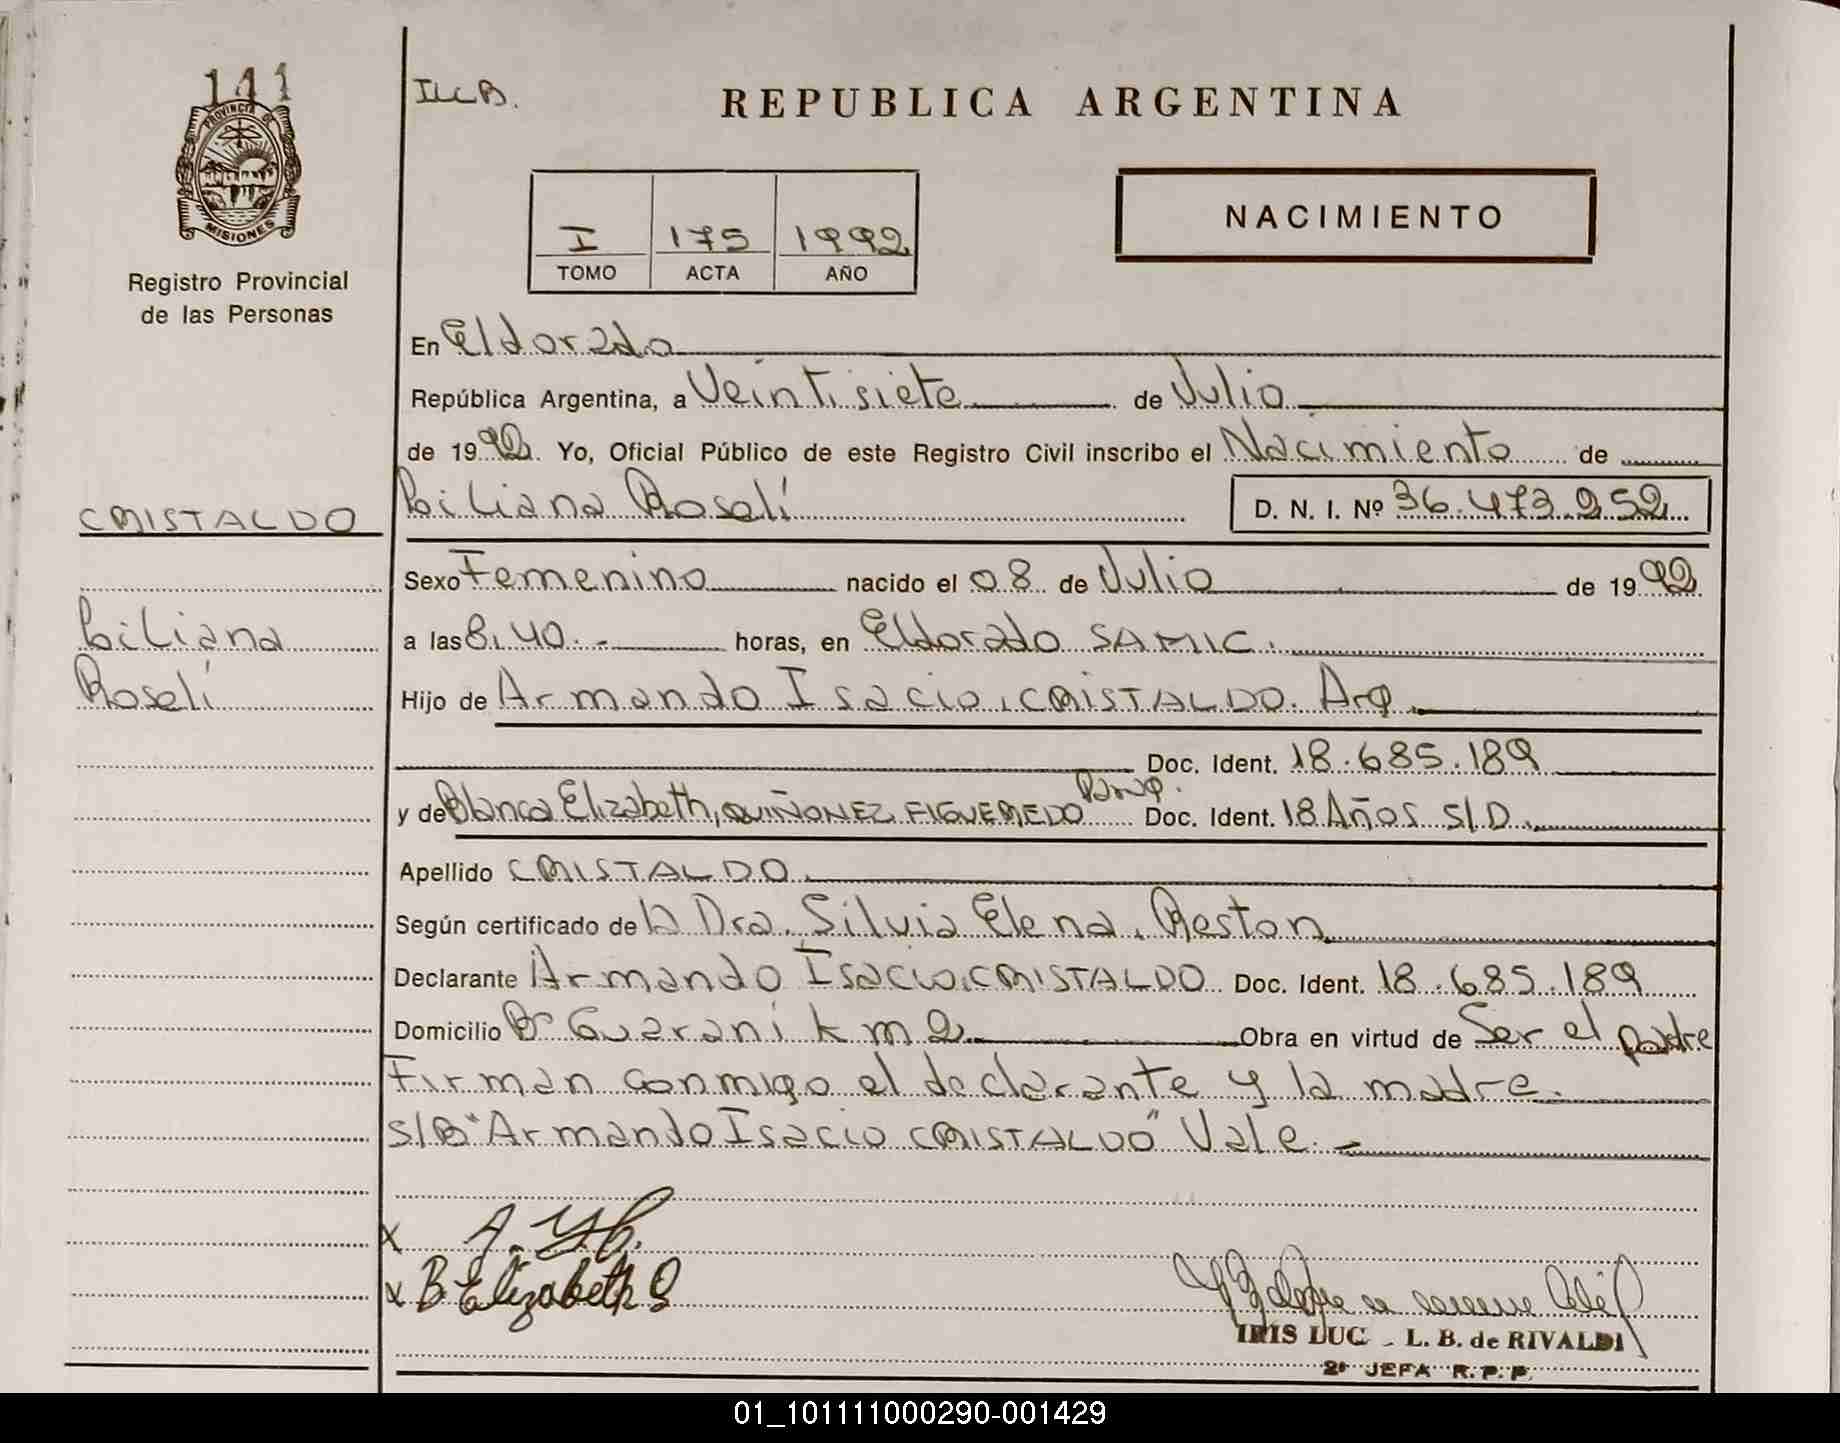 141
PROVINCIA DE
MISIONES
Registro Provincial
de las Personas
CRISTALDO
Liliana
Roselí
ILLB.
REPUBLICA ARGENTINA
I 175 1992
TOMO ACTA AÑO
NACIMIENTO
En Eldorado
República Argentina, a Veintisiete de Julio
de 1992. Yo, Oficial Público de este Registro Civil inscribo el Nacimiento de
Liliana Roselí D. N. I. Nº 36.473.252
Sexo Femenino nacido el 08 de Julio de 1992.
a las 8,40.- horas, en Eldorado SAMIC.
Hijo de Armando Isacio, CRISTALDO. Arg.
Doc. Ident. 18.685.189
Parag.
y de Blanca Elizabeth, QUIÑONEZ FIGUEREDO Doc. Ident. 18 Años S/D.
Apellido CRISTALDO.
Según certificado de la Dra. Silvia Elena, Reston
Declarante Armando Isacio, CRISTALDO Doc. Ident. 18.685.189
Domicilio Bº Guaraní km 2 Obra en virtud de Ser el padre
Firman conmigo el declarante y la madre.
S/R "Armando Isacio CRISTALDO" Vale.-
x
x B Elizabeth Q
IRIS LUC L. B. de RIVALDI
2ª JEFA R. P. P.
01_101111000290-001429